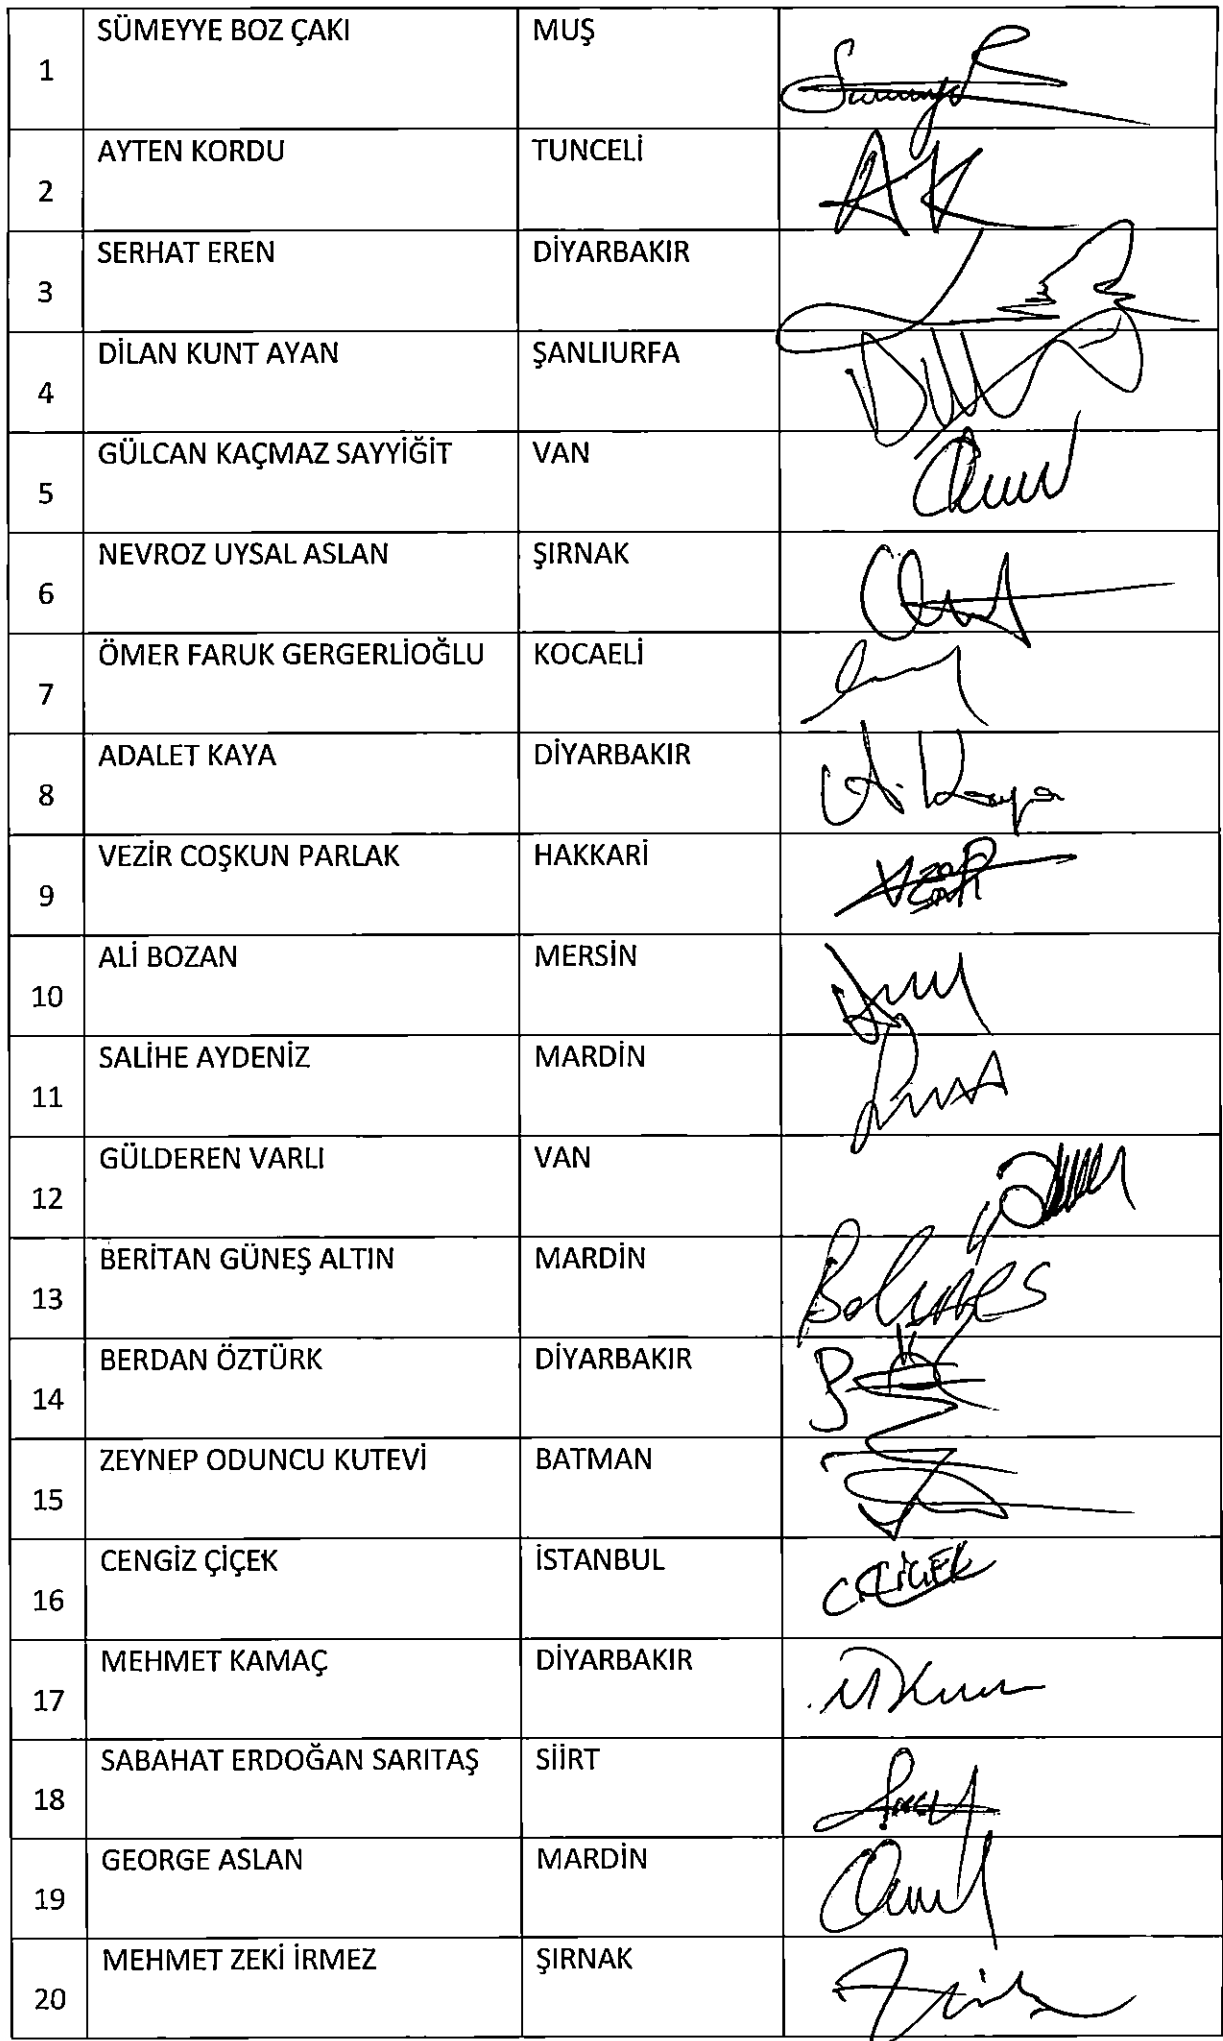 1 SÜMEYYE BOZ ÇAKI MUŞ
2 AYTEN KORDU TUNCELİ AK
3 SERHAT EREN DİYARBAKIR
4 DİLAN KUNT AYAN ŞANLIURFA
5 GÜLCAN KAÇMAZ SAYYİĞİT VAN
6 NEVROZ UYSAL ASLAN ŞIRNAK
7 ÖMER FARUK GERGERLİOĞLU KOCAELİ
8 ADALET KAYA DİYARBAKIR A. Kaya
9 VEZİR COŞKUN PARLAK HAKKARİ
10 ALİ BOZAN MERSİN
11 SALİHE AYDENİZ MARDİN
12 GÜLDEREN VARLI VAN
13 BERİTAN GÜNEŞ ALTIN MARDİN
14 BERDAN ÖZTÜRK DİYARBAKIR
15 ZEYNEP ODUNCU KUTEVİ BATMAN
16 CENGİZ ÇİÇEK İSTANBUL C.ÇİÇEK
17 MEHMET KAMAÇ DİYARBAKIR
18 SABAHAT ERDOĞAN SARITAŞ SİİRT
19 GEORGE ASLAN MARDİN
20 MEHMET ZEKİ İRMEZ ŞIRNAK